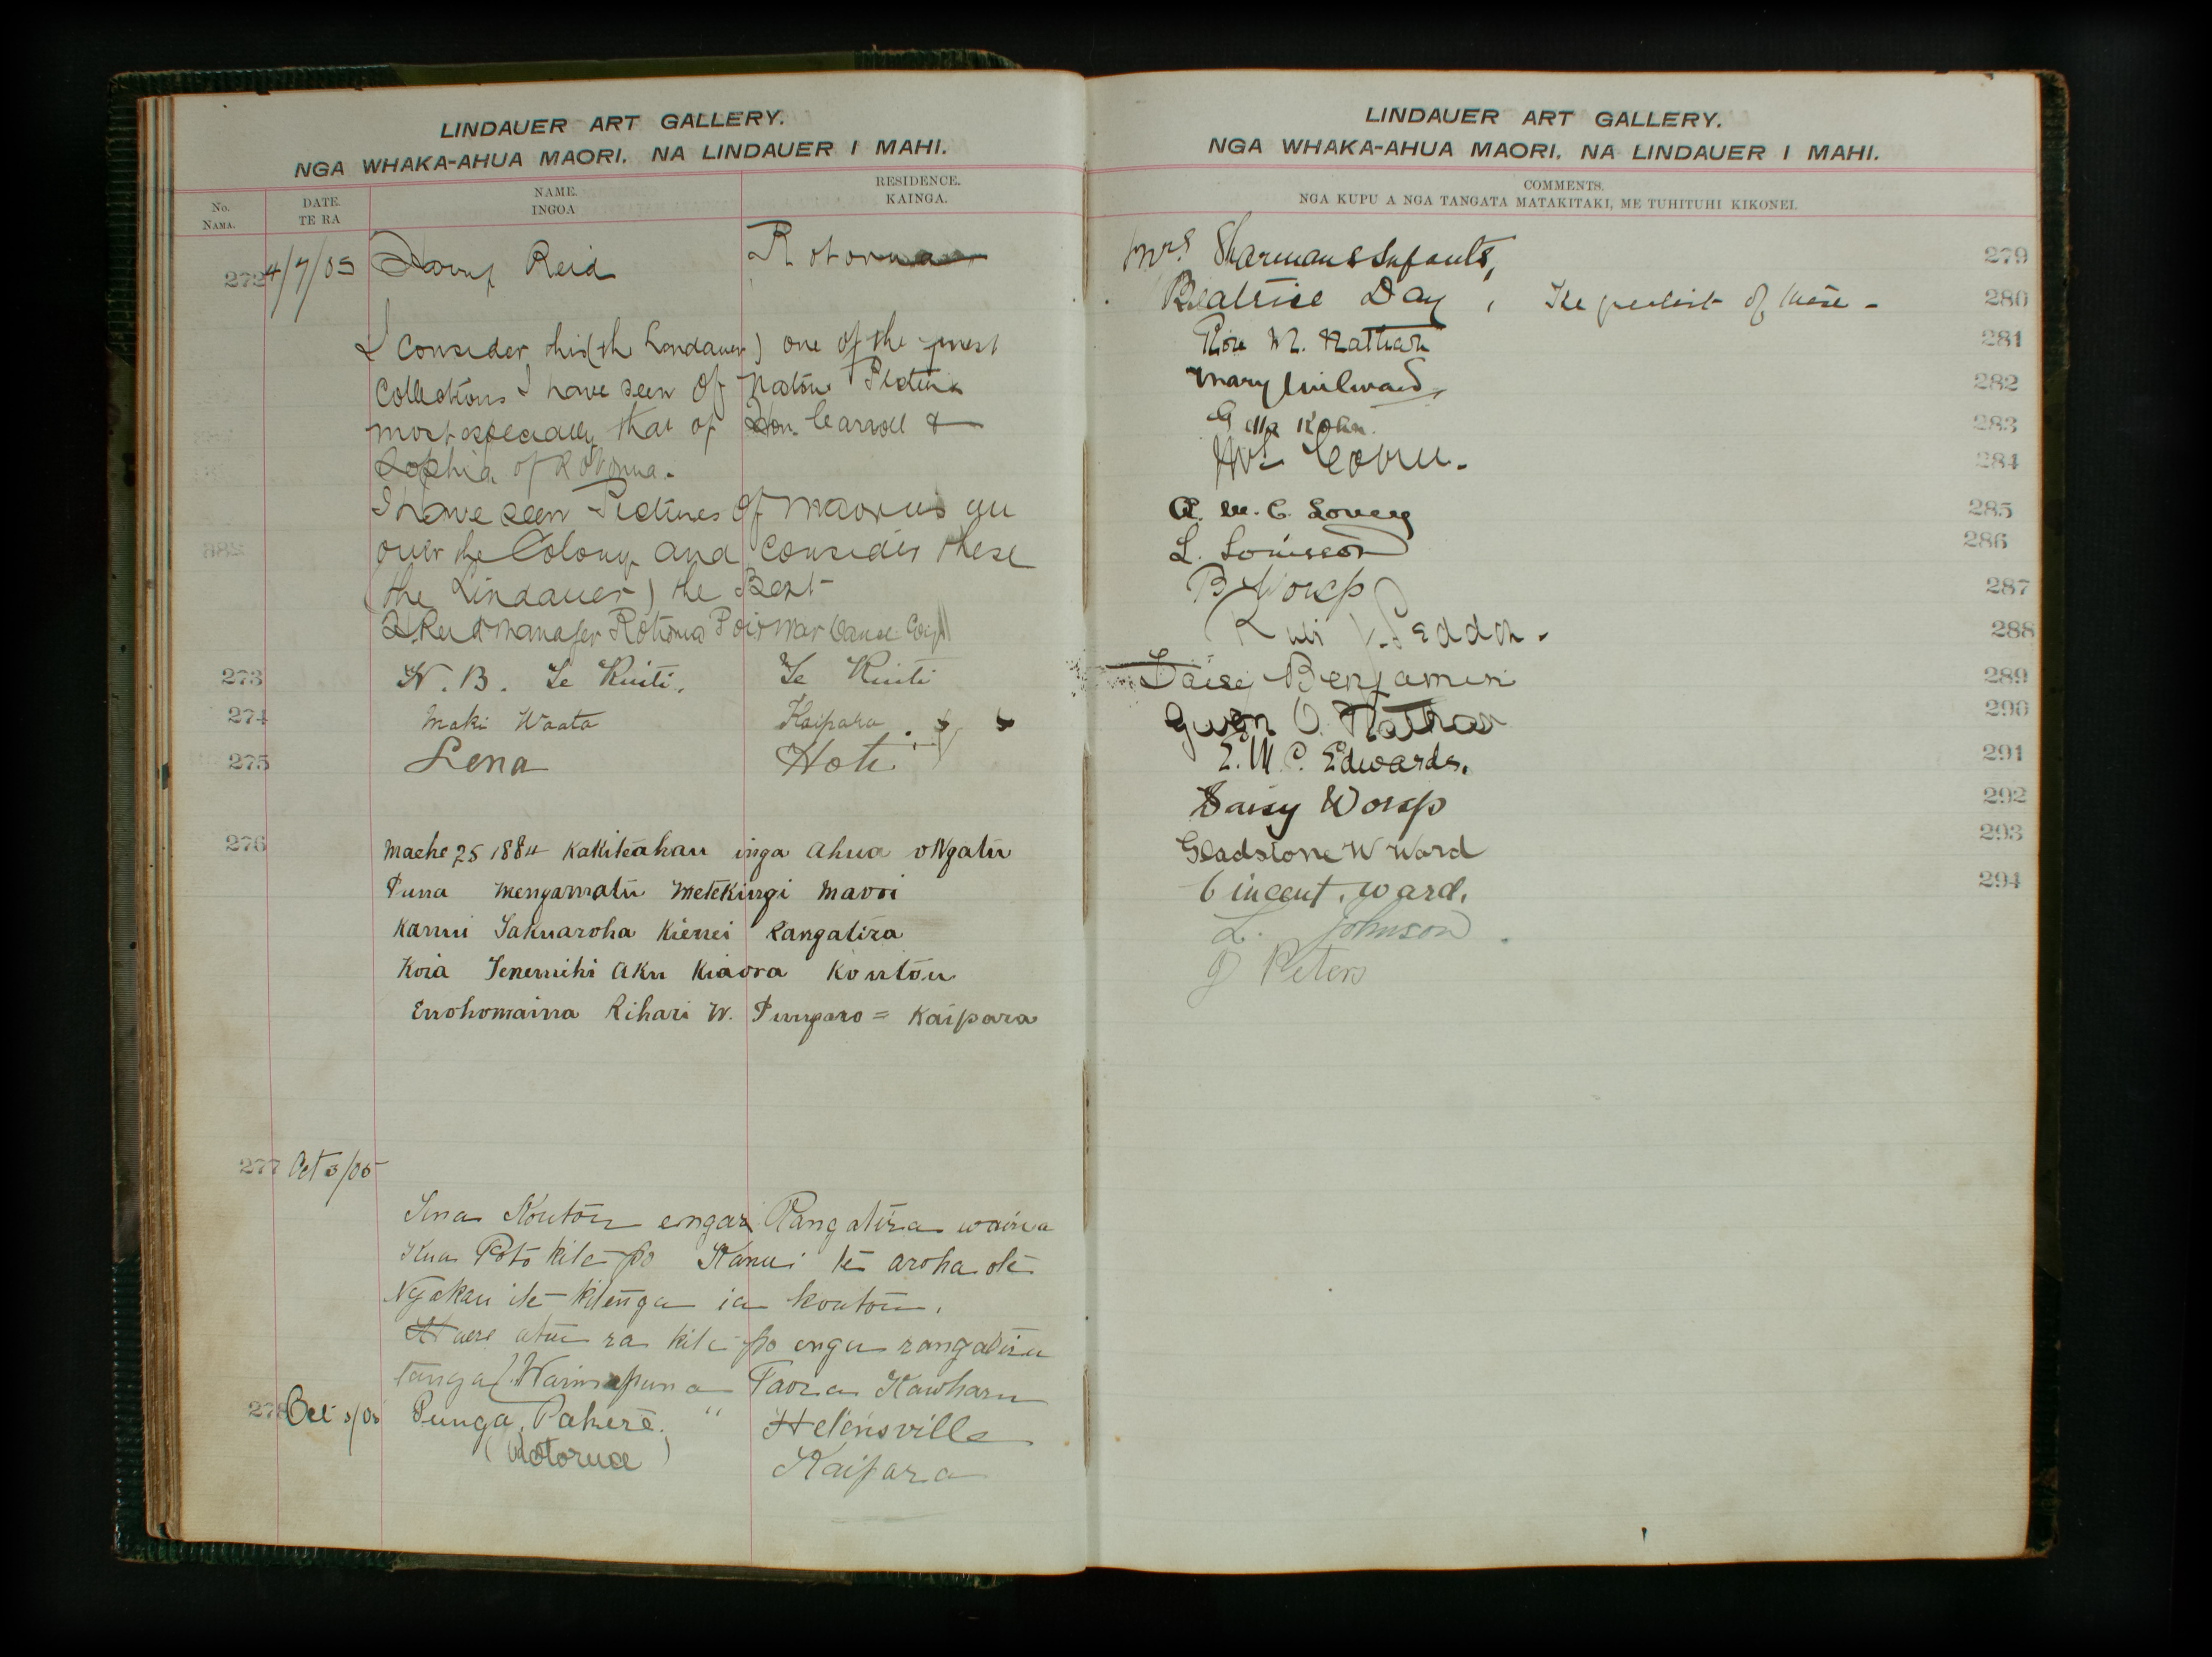 LINDAUER ART GALLERY.
NGA WHAKA-AHUA MAORI, NA LINDAUER I MAHI.
No. NAMA.
DATE. TE RA
NAME. INGOA
RESIDENCE. KAINGA.
272 4/7/05 Reid Rotorua
I consider this (the Lindauer) one of the finest
Collections I have seen of Native Pictures
most especially that of Hon. Carroll &
Sophia of Rotorua.
I have seen Pictures of Maories all
over the Colony and consider these
(the Lindauer) the Best
Reid Manager Rotorua Poi & War Dance
273 N. B. Te Kuiti. Te Kuiti
274 Maki Waata Kaipara
275 Lena Hoti
276 Maehe 25 1884 Kakiteahau inga ahua oNgatu
Puna Mengamatu Metekingi Mavoi
Kanui Takuaroha Kienei Rangatira
Koia Tenemihi Aku Kiaora Koutou
Enohomaina Rihari W. Pungaro = Kaipara
277 Oct 3/05
Tena Koutou engaa Rangatira
Kua Poto kite po Kanui te aroha ote
Ngakau ite kitenga ia koutou.
Haere atu ra kite po enga rangatira
tanga Paora Kawharu
278 Oct 3/05 Punga, Pakere. " Helensville
(Rotorua) Kaipara
LINDAUER ART GALLERY.
NGA WHAKA-AHUA MAORI, NA LINDAUER I MAHI.
COMMENTS.
NGA KUPU A NGA TANGATA MATAKITAKI, ME TUHITUHI KIKONEI.
Mrs Sharman & Infants, 279
Beatrice Day, The of these - 280
M. Nathan 281
Mary Milward 282
Kohn. 283
284
285
L. 286
B Worsp 287
Seddon. 288
Daisy Benjamin 289
Gwen O. Nathan 290
E. M. C. Edwards. 291
Daisy Worsp 292
Gladstone W Ward 293
Vincent. Ward. 294
L. Johnson.
J Peters